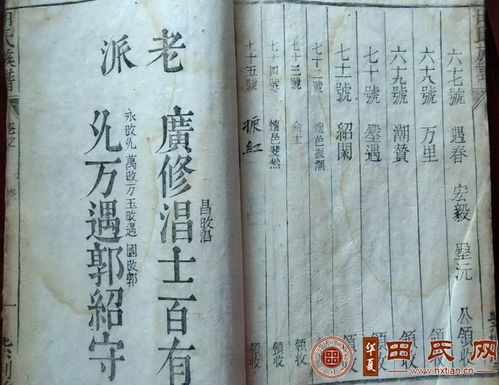 六七號 遇春 宏毅 璺沅 公領收
六八號 万里 領收
六九號 潮贊 領收
七十號 璺遇 領收
七十一號 紹閑 領收
七十二號 懷邑振潮 領收
七十三號 命士 領收
七十四號 懷邑斐然 領收
七十五號 振紅 領收
老派
廣修淐士百有
昌改淐
允万遇郭紹守
永改允 萬改万 玉改遇 國改郭
田氏族譜
華夏 田氏网
www.hxtian.cn